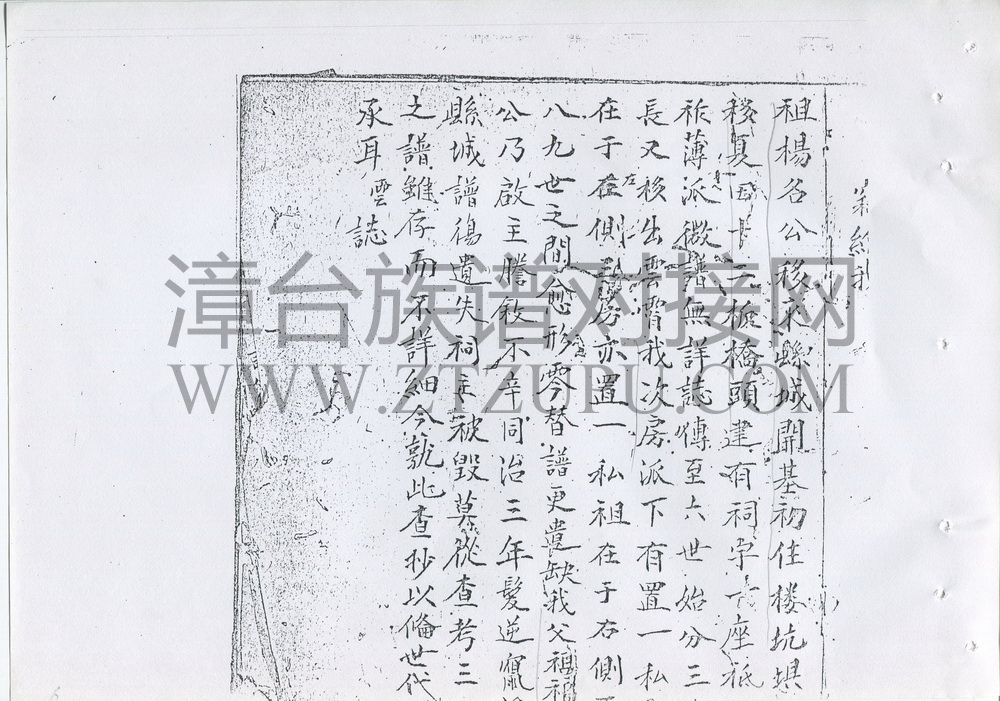 祖楊名公移來縣城開基初住樓坑埧
移夏 十三板橋頭建有祠宇一座祇
祚薄派微譜無詳誌傳至六世始分三
長又移出雲霄我次房派下有置一私
在于左側 房亦置一私祖在于右側
八九世之間愈形零替譜更遺缺我父祖福
公乃啟主謄敘不辛同治三年髮逆竄
縣城譜復遺失祠主被毀莫從查考三
之譜雖存而不詳細今就此查抄以備世代
承耳雲誌
漳台族谱对接网
WWW.ZTZUPU.COM